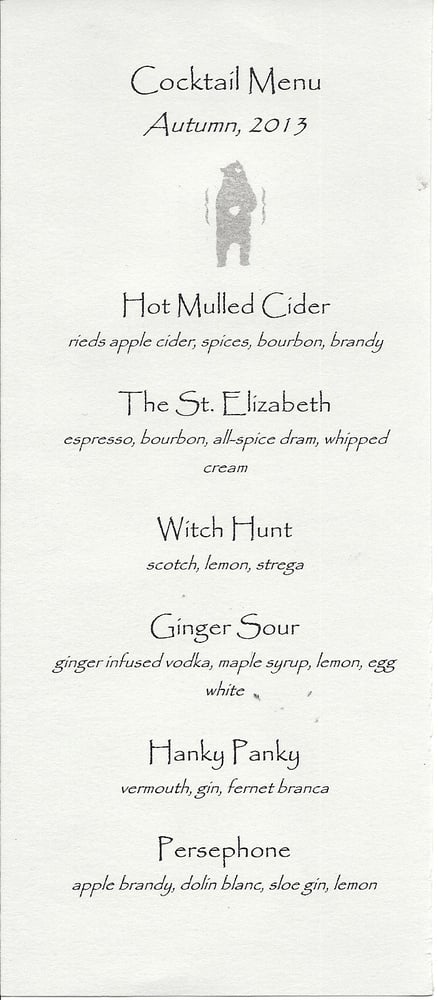 Cocktail Menu
Autumn, 2013
Hot Mulled Cider
rieds apple cider, spices, bourbon, brandy
The St. Elizabeth
espresso, bourbon, all-spice dram, whipped
cream
Witch Hunt
scotch, lemon, strega
Ginger Sour
ginger infused vodka, maple syrup, lemon, egg
white
Hanky Panky
vermouth, gin, fernet branca
Persephone
apple brandy, dolin blanc, sloe gin, lemon